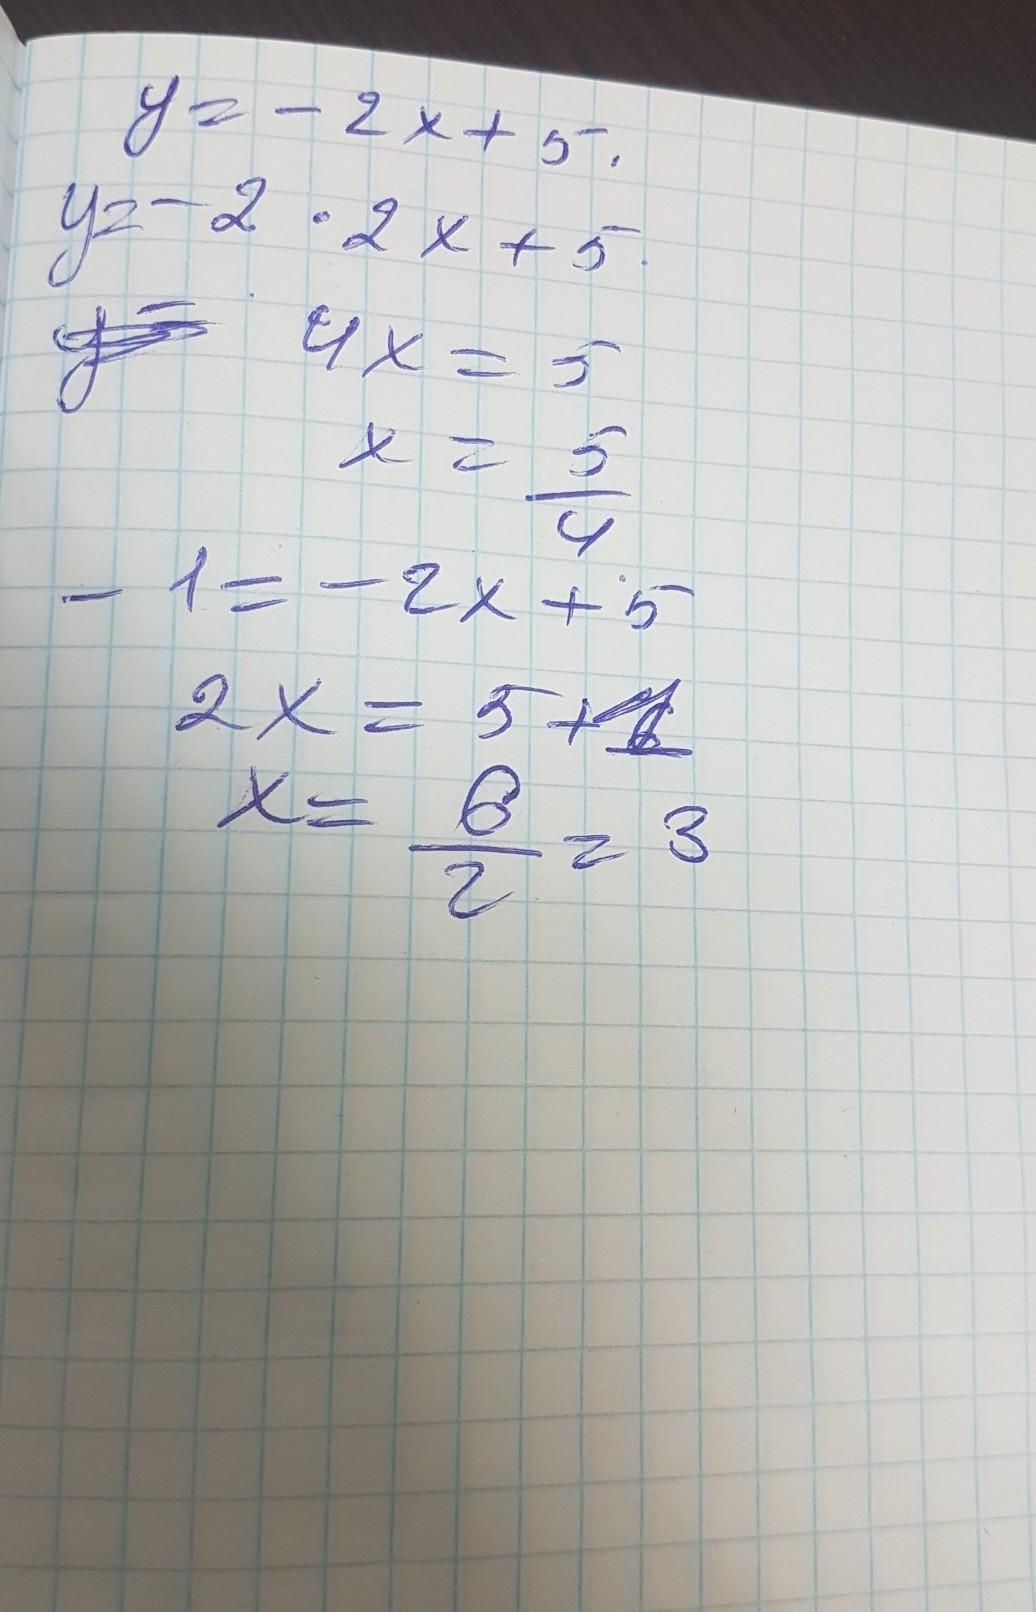 y = - 2x + 5.
y = - 2 · 2x + 5.
4x = 5
x = 5/4
- 1 = - 2x + 5
2x = 5 + 1
x = 6/2 = 3